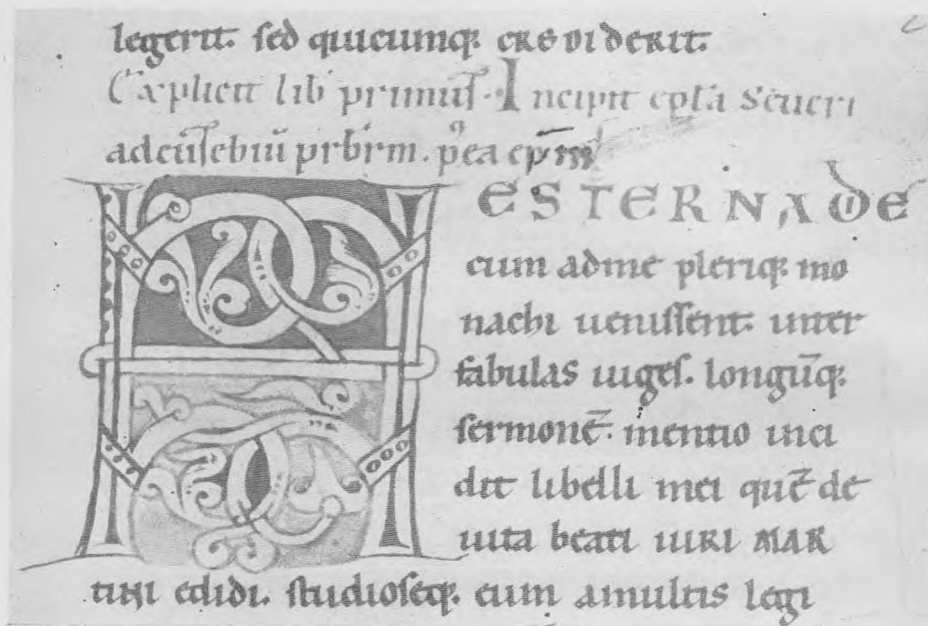 legerit. sed quicumq; CREDIDERIT.
Explicit lib primus. Incipit epl̄a Seueri
adeusebiū prb̄rm. p̊ea ep̄m
HESTERNA DE
cum adme pleriq; mo
nachi uenissent. inter
fabulas iuges. longūq;
sermonē. mentio inci
dit libelli mei quē de
uita beati uiRI MAR
tini edidi. studioseq; eum amultis legi